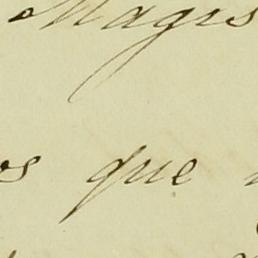 Magis
os que